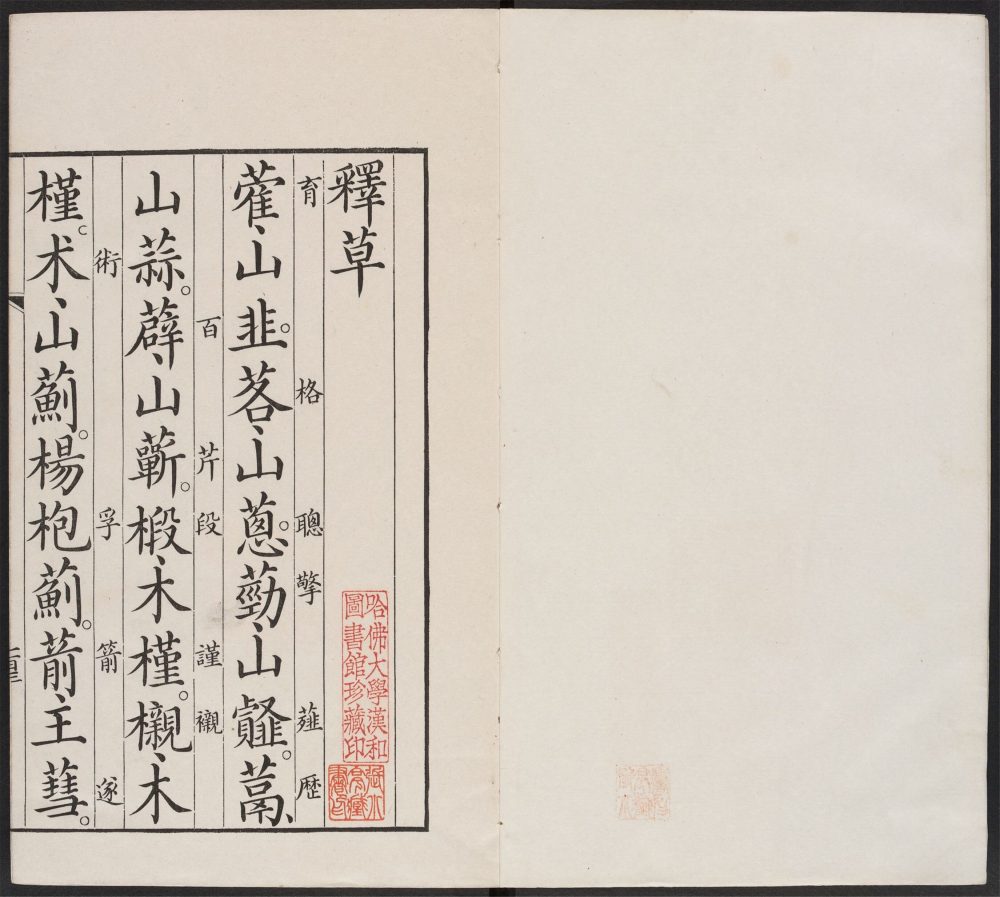 釋草
育 格 聰 擎 薤 歴
蒮、山韭。茖、山葱。葝、山䪥。蒚、
百 芹 段 謹 襯
山蒜。薜、山蘄。椴、木槿。櫬、木
術 孚 箭 遂
槿。术、山薊。楊枹薊。葥、王蔧。
哈佛大學漢和
圖書館珍藏印